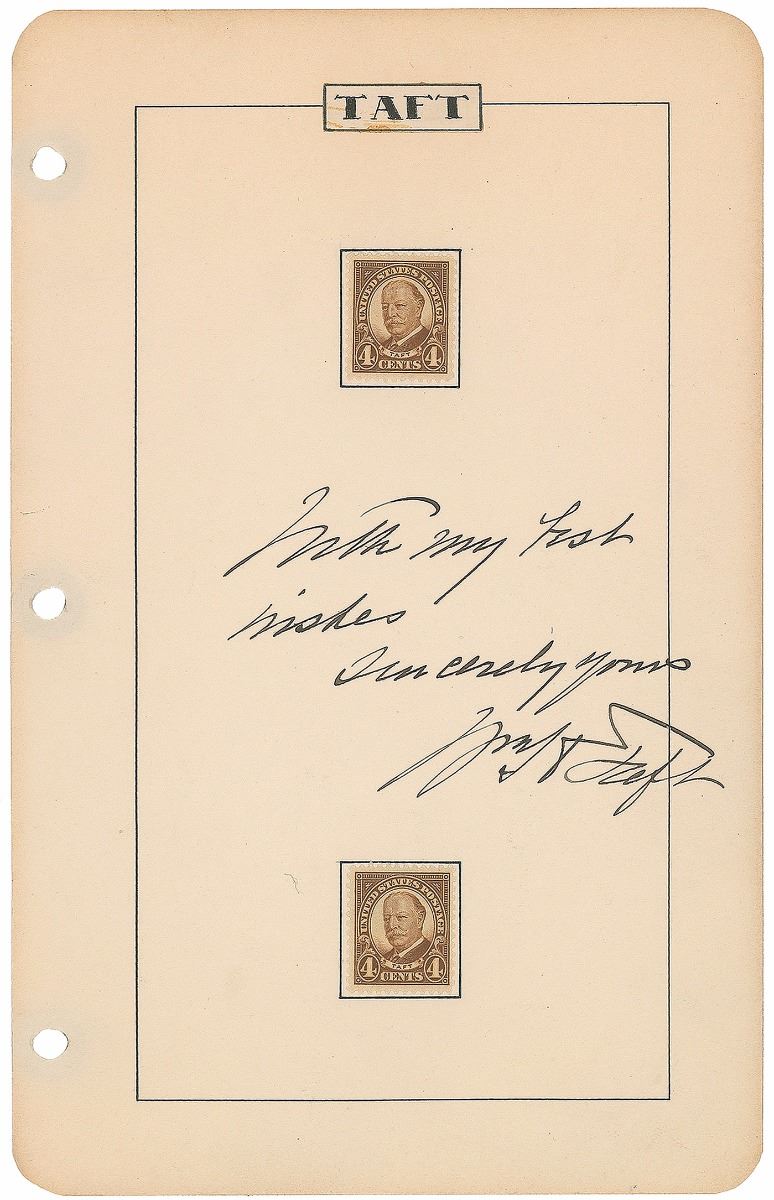 TAFT
UNITED STATES POSTAGE
TAFT
4 CENTS 4
With my best
wishes
Sincerely yours
Wm H Taft
UNITED STATES POSTAGE
TAFT
4 CENTS 4